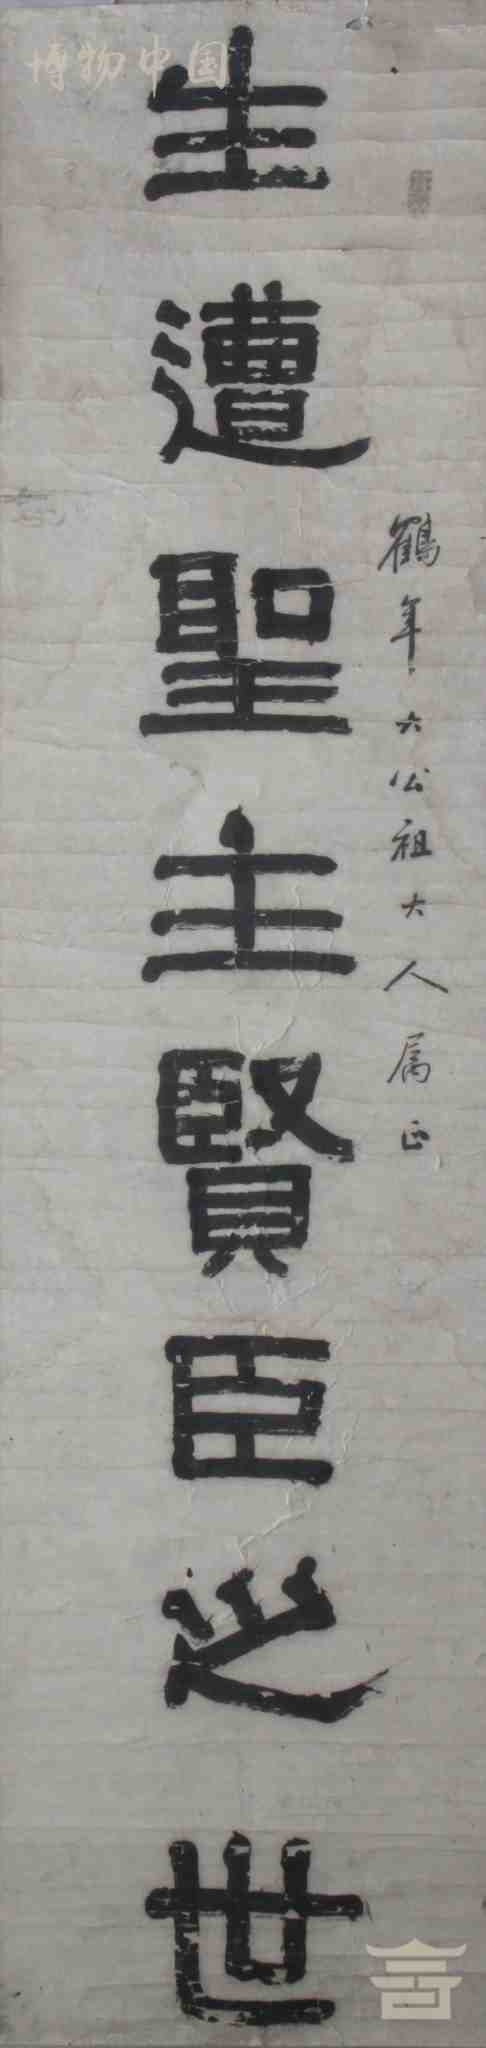 博物中国
鶴年六公祖大人属正
生遭聖主賢臣之世